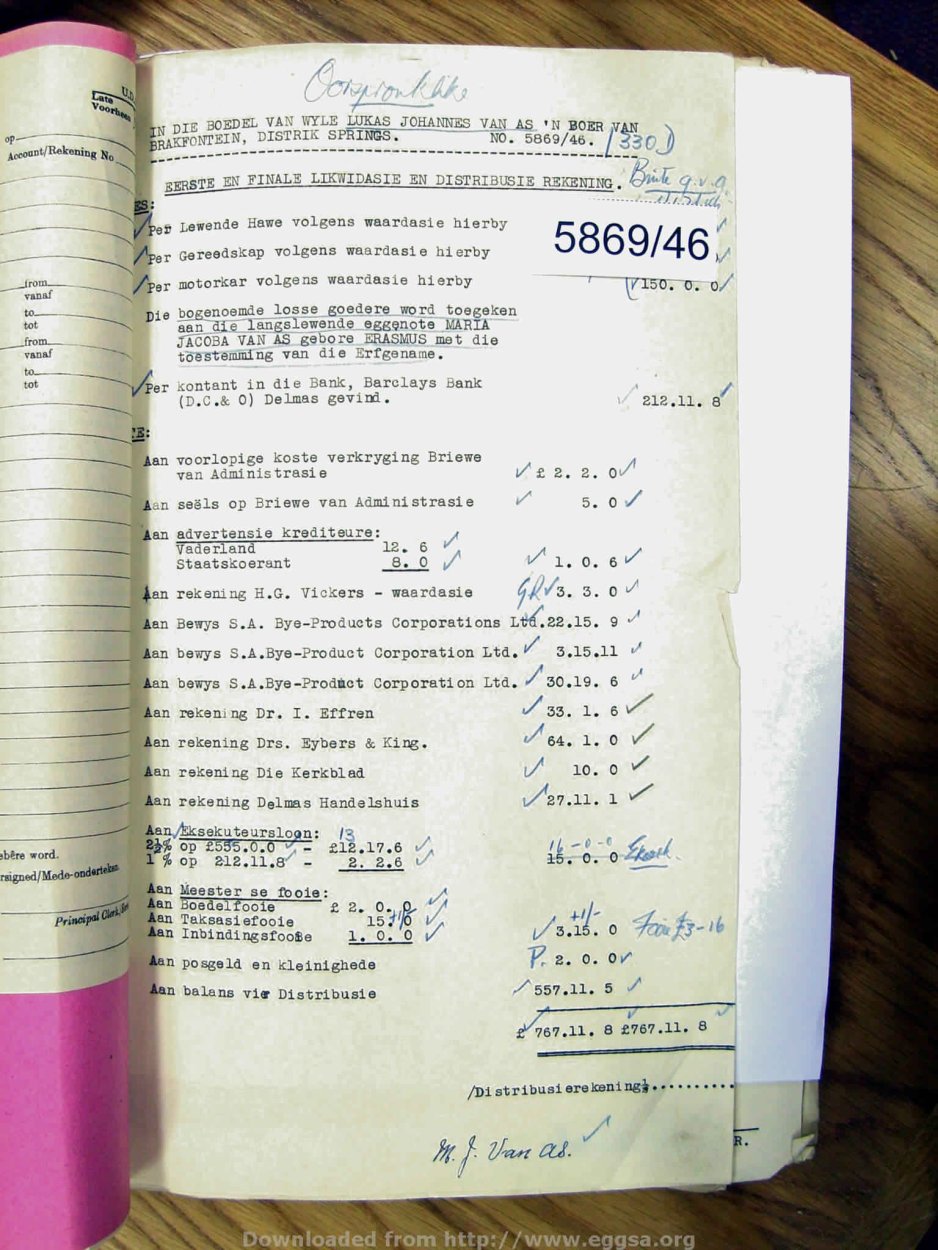 Oorspronklike
IN DIE BOEDEL VAN WYLE LUKAS JOHANNES VAN AS 'N BOER VAN
BRAKFONTEIN, DISTRIK SPRINGS. NO. 5869/46. (330)
EERSTE EN FINALE LIKWIDASIE EN DISTRIBUSIE REKENING.
ES:
Per Lewende Hawe volgens waardasie hierby
5869/46
Per Gereedskap volgens waardasie hierby
Per motorkar volgens waardasie hierby 150. 0. 0
Die bogenoemde losse goedere word toegeken
aan die langslewende eggenote MARIA
JACOBA VAN AS gebore ERASMUS met die
toestemming van die Erfgename.
Per kontant in die Bank, Barclays Bank
(D.C.& O) Delmas gevind. 212.11. 8
TE:
Aan voorlopige koste verkryging Briewe
van Administrasie £ 2. 2. 0
Aan seëls op Briewe van Administrasie 5. 0
Aan advertensie krediteure:
Vaderland 12. 6
Staatskoerant 8. 0 1. 0. 6
Aan rekening H.G. Vickers - waardasie 3. 3. 0
Aan Bewys S.A. Bye-Products Corporations Ltd.22.15. 9
Aan bewys S.A.Bye-Product Corporation Ltd. 3.15.11
Aan bewys S.A.Bye-Product Corporation Ltd. 30.19. 6
Aan rekening Dr. I. Effren 33. 1. 6
Aan rekening Drs. Eybers & King. 64. 1. 0
Aan rekening Die Kerkblad 10. 0
Aan rekening Delmas Handelshuis 27.11. 1
Aan Eksekuteursloon: 13
2½% op £555.0.0 - £12.17.6 16-0-0
1 % op 212.11.8 - 2. 2.6 15. 0. 0
Aan Meester se fooie:
Aan Boedelfooie £ 2. 0. 0
Aan Taksasiefooie 15. 0 +1/-
Aan Inbindingsfooie 1. 0. 0 3.15. 0 £3-16
Aan posgeld en kleinighede P. 2. 0. 0
Aan balans vir Distribusie 557.11. 5
£ 767.11. 8 £767.11. 8
/Distribusierekening:..........
M. J. Van As.
R.
U.D.
Late
Voorheen
op
Account/Rekening No
from
vanaf
to
tot
from
vanaf
to
tot
ebêre word.
rsigned/Mede-ondertekende
Principal Clerk
Downloaded from http://www.eggsa.org